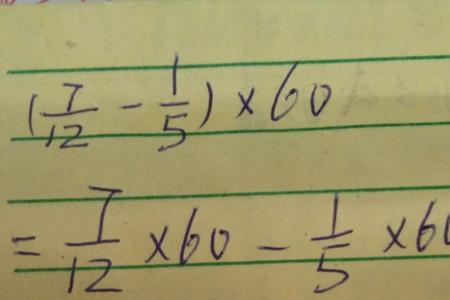 (7/12 - 1/5) × 60
= 7/12 × 60 - 1/5 × 60